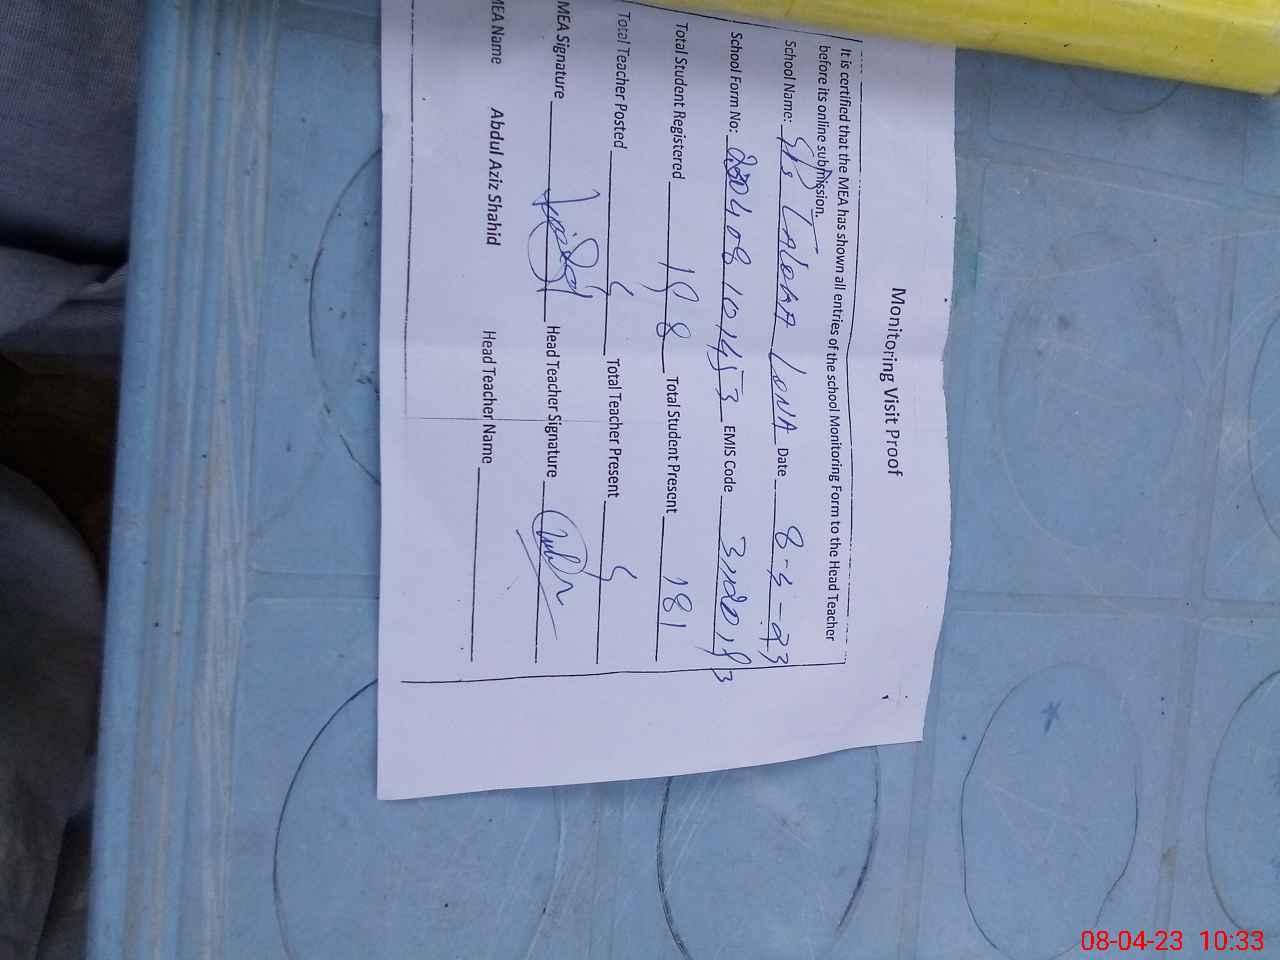 Monitoring Visit Proof
It is certified that the MEA has shown all entries of the school Monitoring Form to the Head Teacher
before its online submission.
School Name: GPS LALOKA LONA Date 8-4-23
School Form No: 230408101453 EMIS Code
Total Student Registered 198 Total Student Present 181
Total Teacher Posted Total Teacher Present
MEA Signature Head Teacher Signature
MEA Name Abdul Aziz Shahid Head Teacher Name
08-04-23 10:33